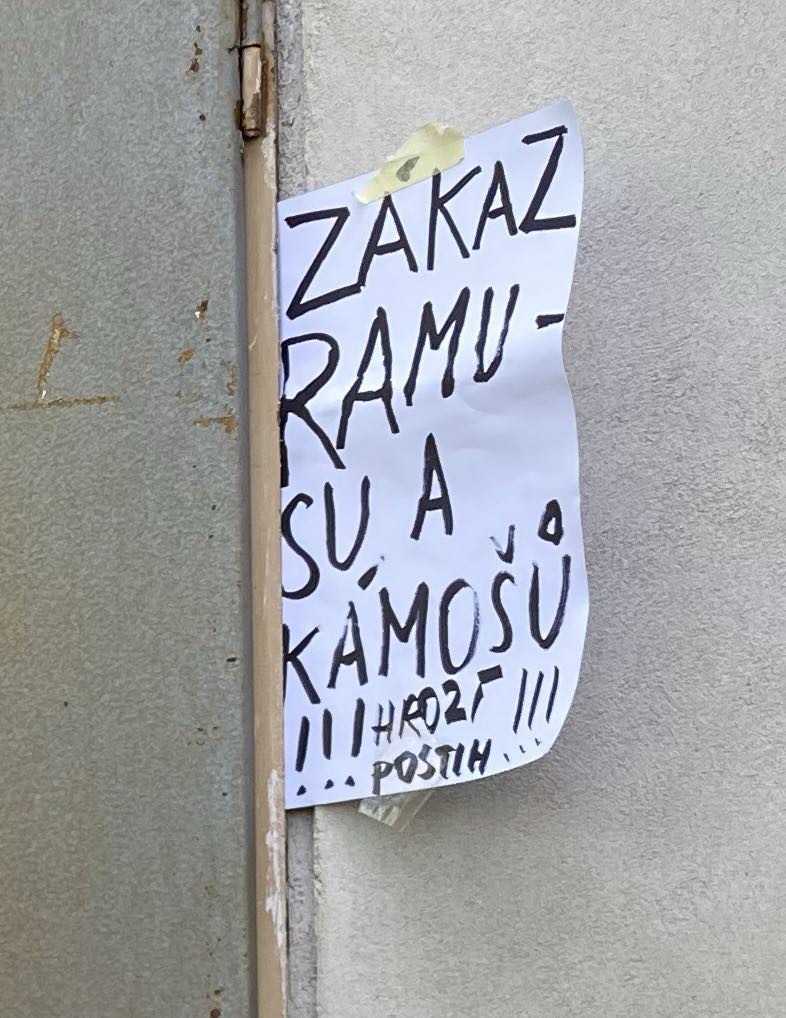 ZÁKAZ
RAMU-
SU A
KÁMOŠŮ
!!! HROZÍ !!!
POSTIH